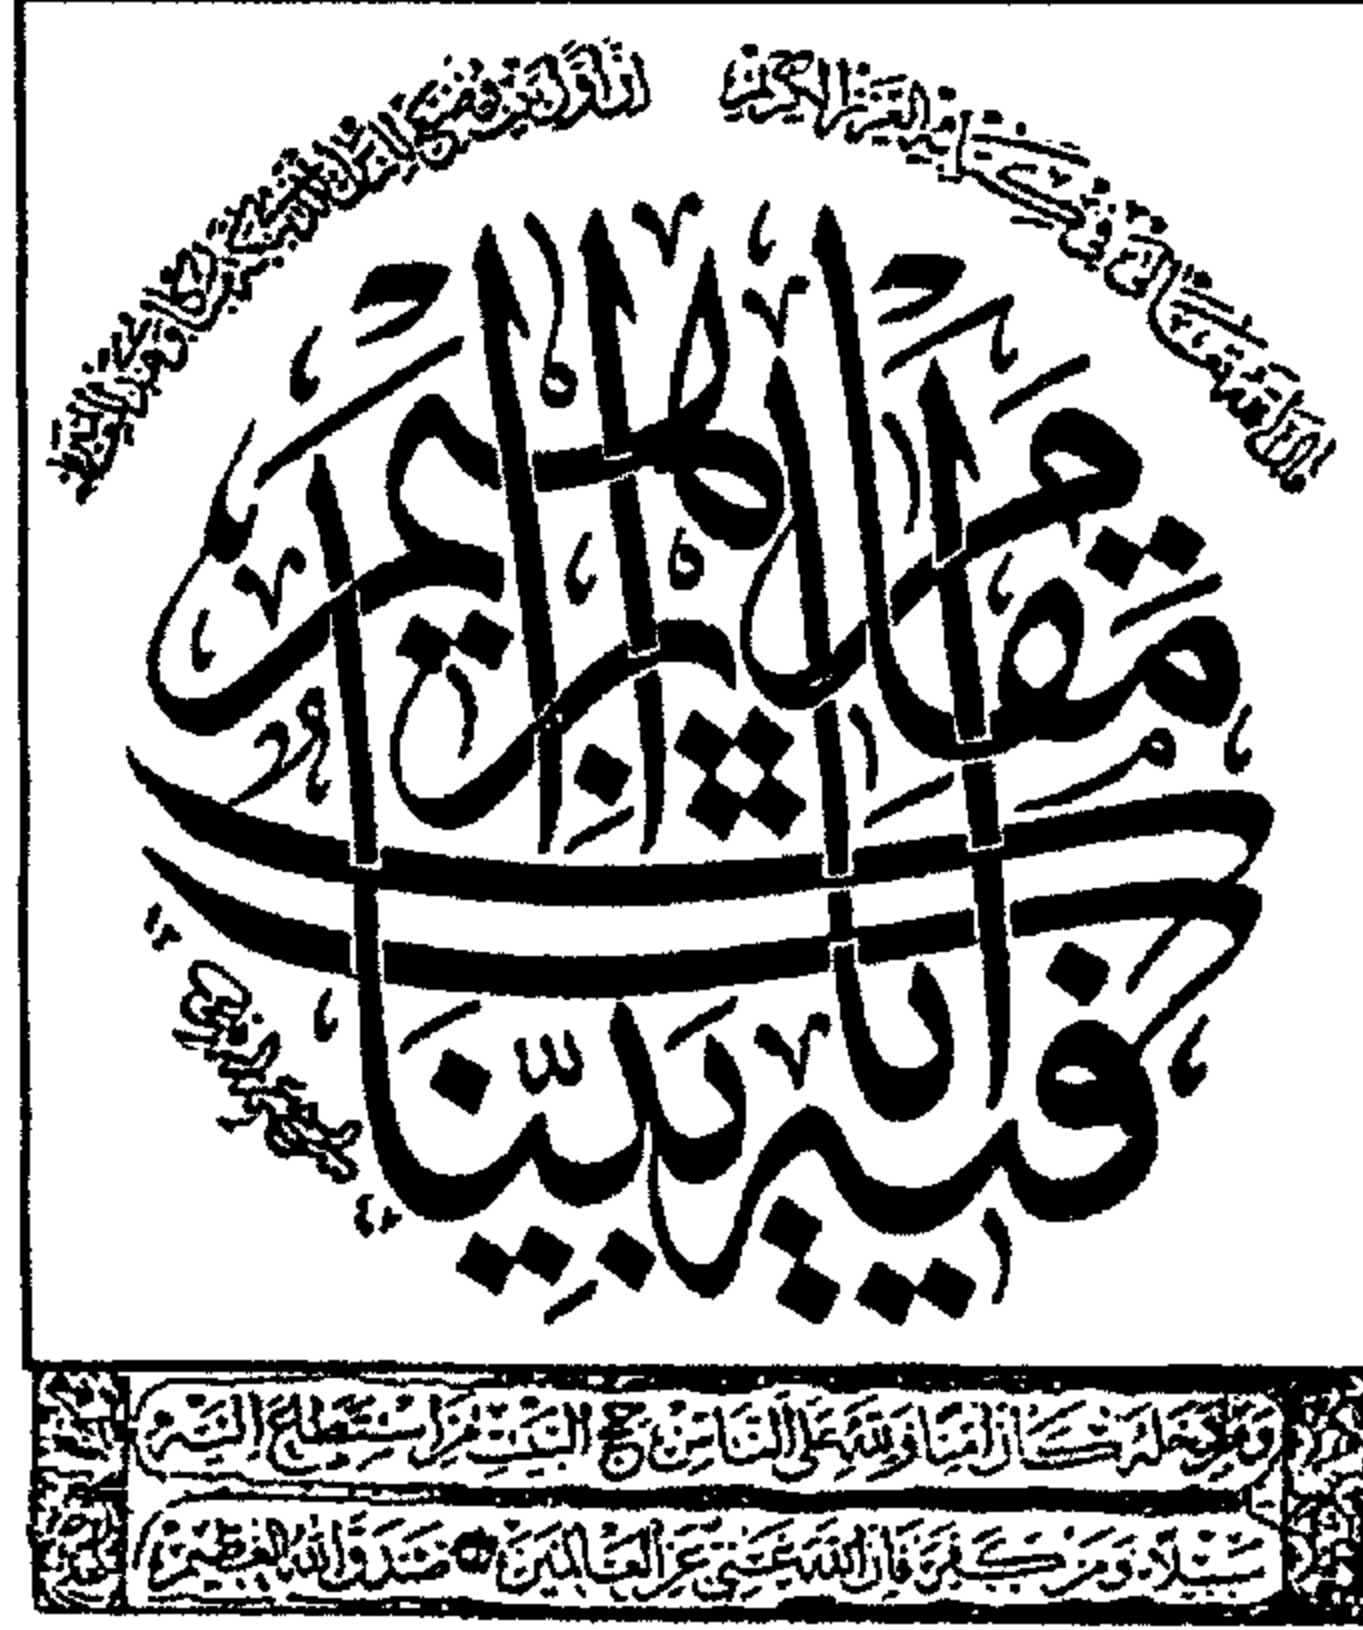 قال الله تعالى في كتابه العزيز الكريم
إن أول بيت وضع للناس للذي ببكة مباركا وهدى للعالمين
فِيهِ آيَاتٌ بَيِّنَاتٌ مَقَامُ إِبْرَاهِيمَ
وَمَنْ دَخَلَهُ كَانَ آمِنًا وَلِلَّهِ عَلَى النَّاسِ حِجُّ الْبَيْتِ مَنِ اسْتَطَاعَ إِلَيْهِ
سَبِيلًا وَمَنْ كَفَرَ فَإِنَّ اللَّهَ غَنِيٌّ عَنِ الْعَالَمِينَ صَدَقَ اللَّهُ الْعَظِيمُ